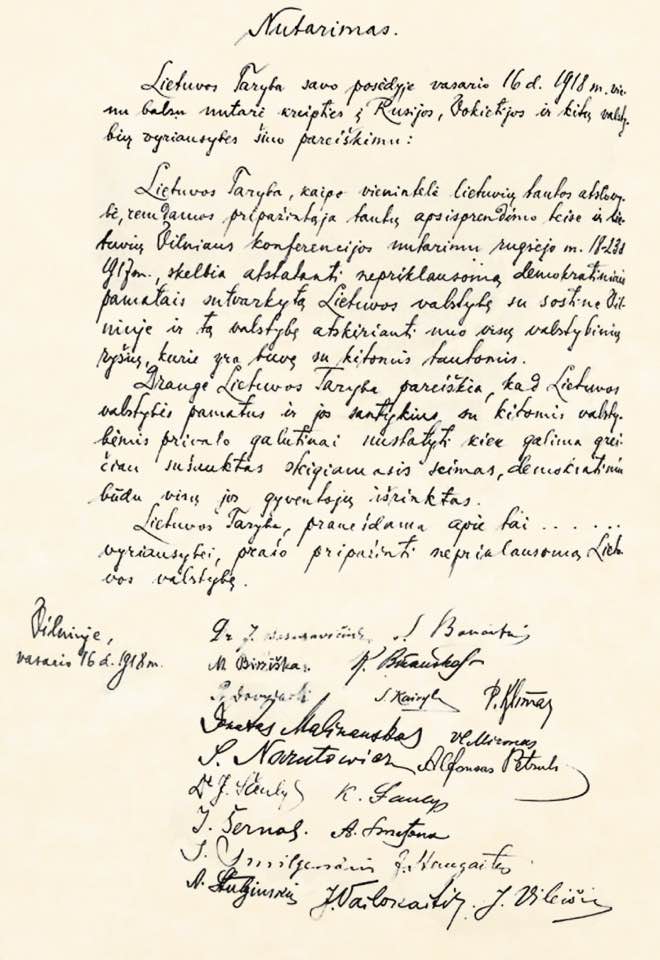 Nutarimas.
Lietuvos Taryba savo posėdyje vasario 16 d. 1918 m. vie-
nu balsu nutarė kreipties į Rusijos, Vokietijos ir kitų valsty-
bių vyriausybes šiuo pareiškimu:
Lietuvos Taryba, kaipo vienintelė lietuvių tautos atstovy-
bė, remdamos pripažintąja tautų apsisprendimo teise ir lie-
tuvių Vilniaus konferencijos nutarimu rugsėjo m. 18-23 d
1917 m., skelbia atstatanti nepriklausomą demokratiniais
pamatais sutvarkytą Lietuvos valstybę su sostine Vil-
niuje ir tą valstybę atskirianti nuo visų valstybinių
ryšių, kurie yra buvę su kitomis tautomis.
Drauge Lietuvos Taryba pareiškia, kad Lietuvos
valstybės pamatus ir jos santykius su kitomis valsty-
bėmis privalo galutinai nustatyti kiek galima grei-
čiau sušauktas steigiamasis seimas, demokratiniu
būdu visų jos gyventojų išrinktas.
Lietuvos Taryba, pranešdama apie tai . . . . . .
vyriausybei, prašo pripažinti nepriklausomą Lietu-
vos valstybę.
Vilniuje,
vasario 16 d. 1918 m.
Dr J. Basanavičius J Banaitis
M Biržiška K. Bizauskas
S. Kairys P. Klimas
Donatas Malinauskas Vl. Mironas
S. Narutowicz Alfonsas Petrulis
Dr J. Šaulys K. Šaulys
J. Šernas. A. Smetona
J. Smilgevičius J. Staugaitis
A. Stulginskis J. Vailokaitis J. Vileišis